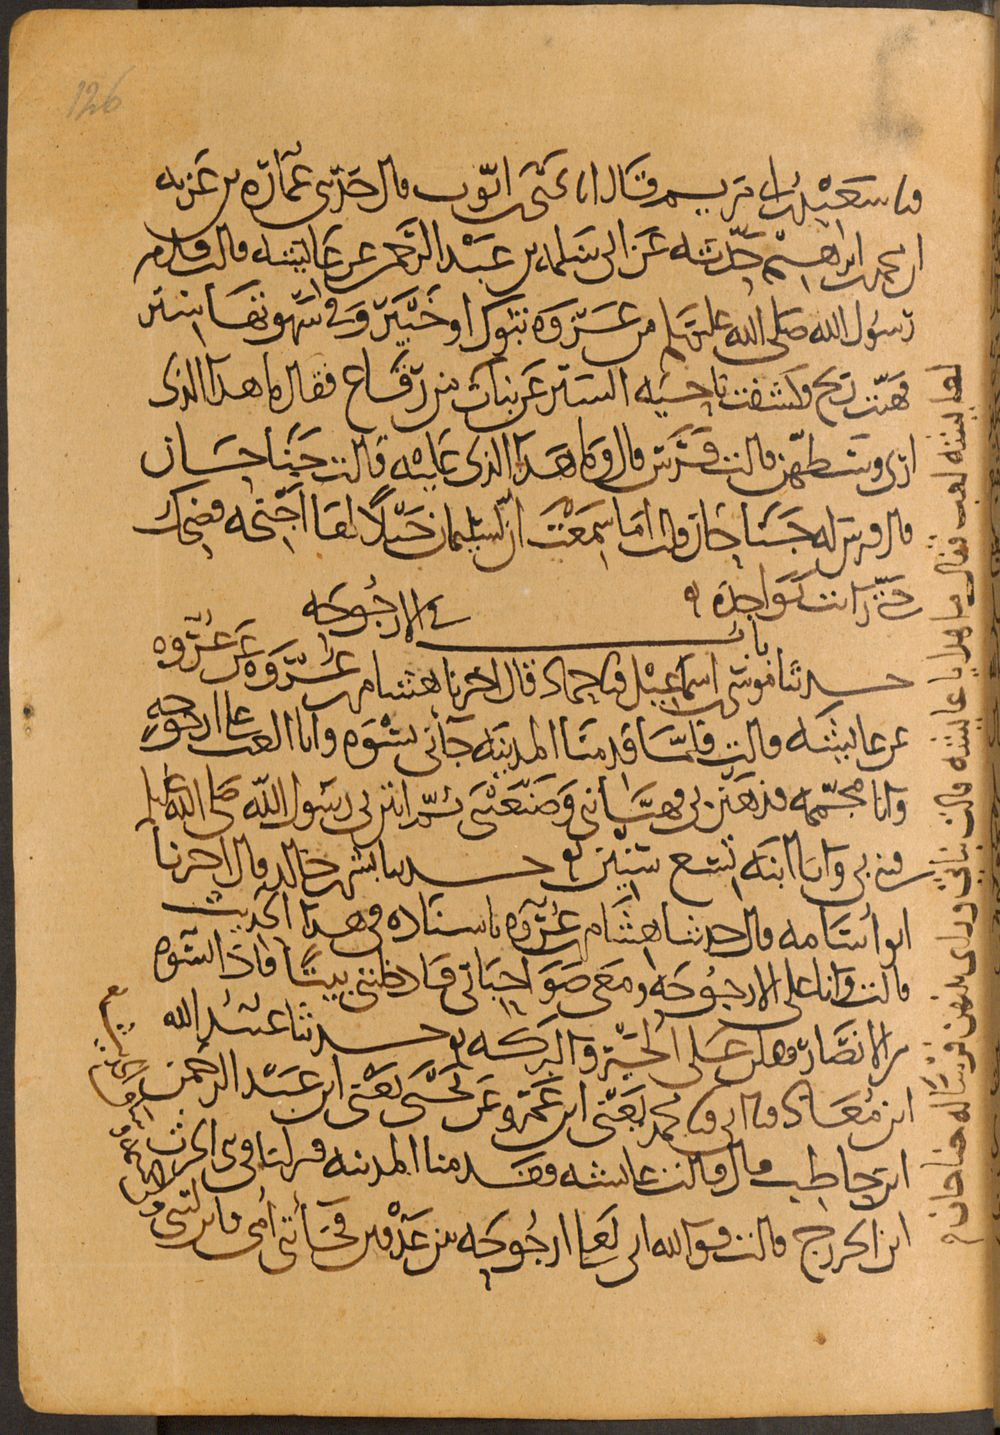 126
نا سعيد بن ابي مريم قال انا يحيى بن ايوب قال حدثني عمارة بن غزية
ان محمد بن ابراهيم حدثه عن ابي سلمة بن عبد الرحمن عن عائشة قالت قدم
رسول الله صلى الله عليه وسلم من غزوة تبوك او خيبر وفي سهوتها ستر
فهبت ريح وكشفت ناحية الستر عن بنات من رقاع فقال ما هذا الذي
ارى وسطهن قالت فرس قال وما هذا الذي عليه قالت جناحان
قال فرس له جناحان قالت اما سمعت ان لسليمان خيلا لها اجنحة فضحك
حتى رايت نواجذه
باب في الارجوحة
حدثنا موسى بن اسماعيل نا حماد قال اخبرنا هشام بن عروة عن عروة
عن عائشة قالت فلما قدمنا المدينة جاءني نسوة وانا العب على ارجوحة
وانا مجممة فذهبن بي فهيأنني وصنعنني ثم اتين بي رسول الله صلى الله عليه
فبنى بي وانا ابنة تسع سنين حدثنا بشر بن خالد قال اخبرنا
ابو أسامة قال حدثنا هشام بن عروة باسناده في هذا الحديث
قالت وانا على الارجوحة ومعي صواحباتي فادخلنني بيتا فاذا نسوة
من الانصار فقلن على الخير والبركة حدثنا عبيد الله
ابن معاذ نا ابي نا محمد يعني ابن عمرو عن يحيى يعني ابن عبد الرحمن
ابن حاطب قال قالت عائشة فقدمنا المدينة فنزلنا في بني الحرث
ابن الخزرج قالت فوالله اني لعلى ارجوحة بين عذقين فجاءتني امي فانزلتني ولي